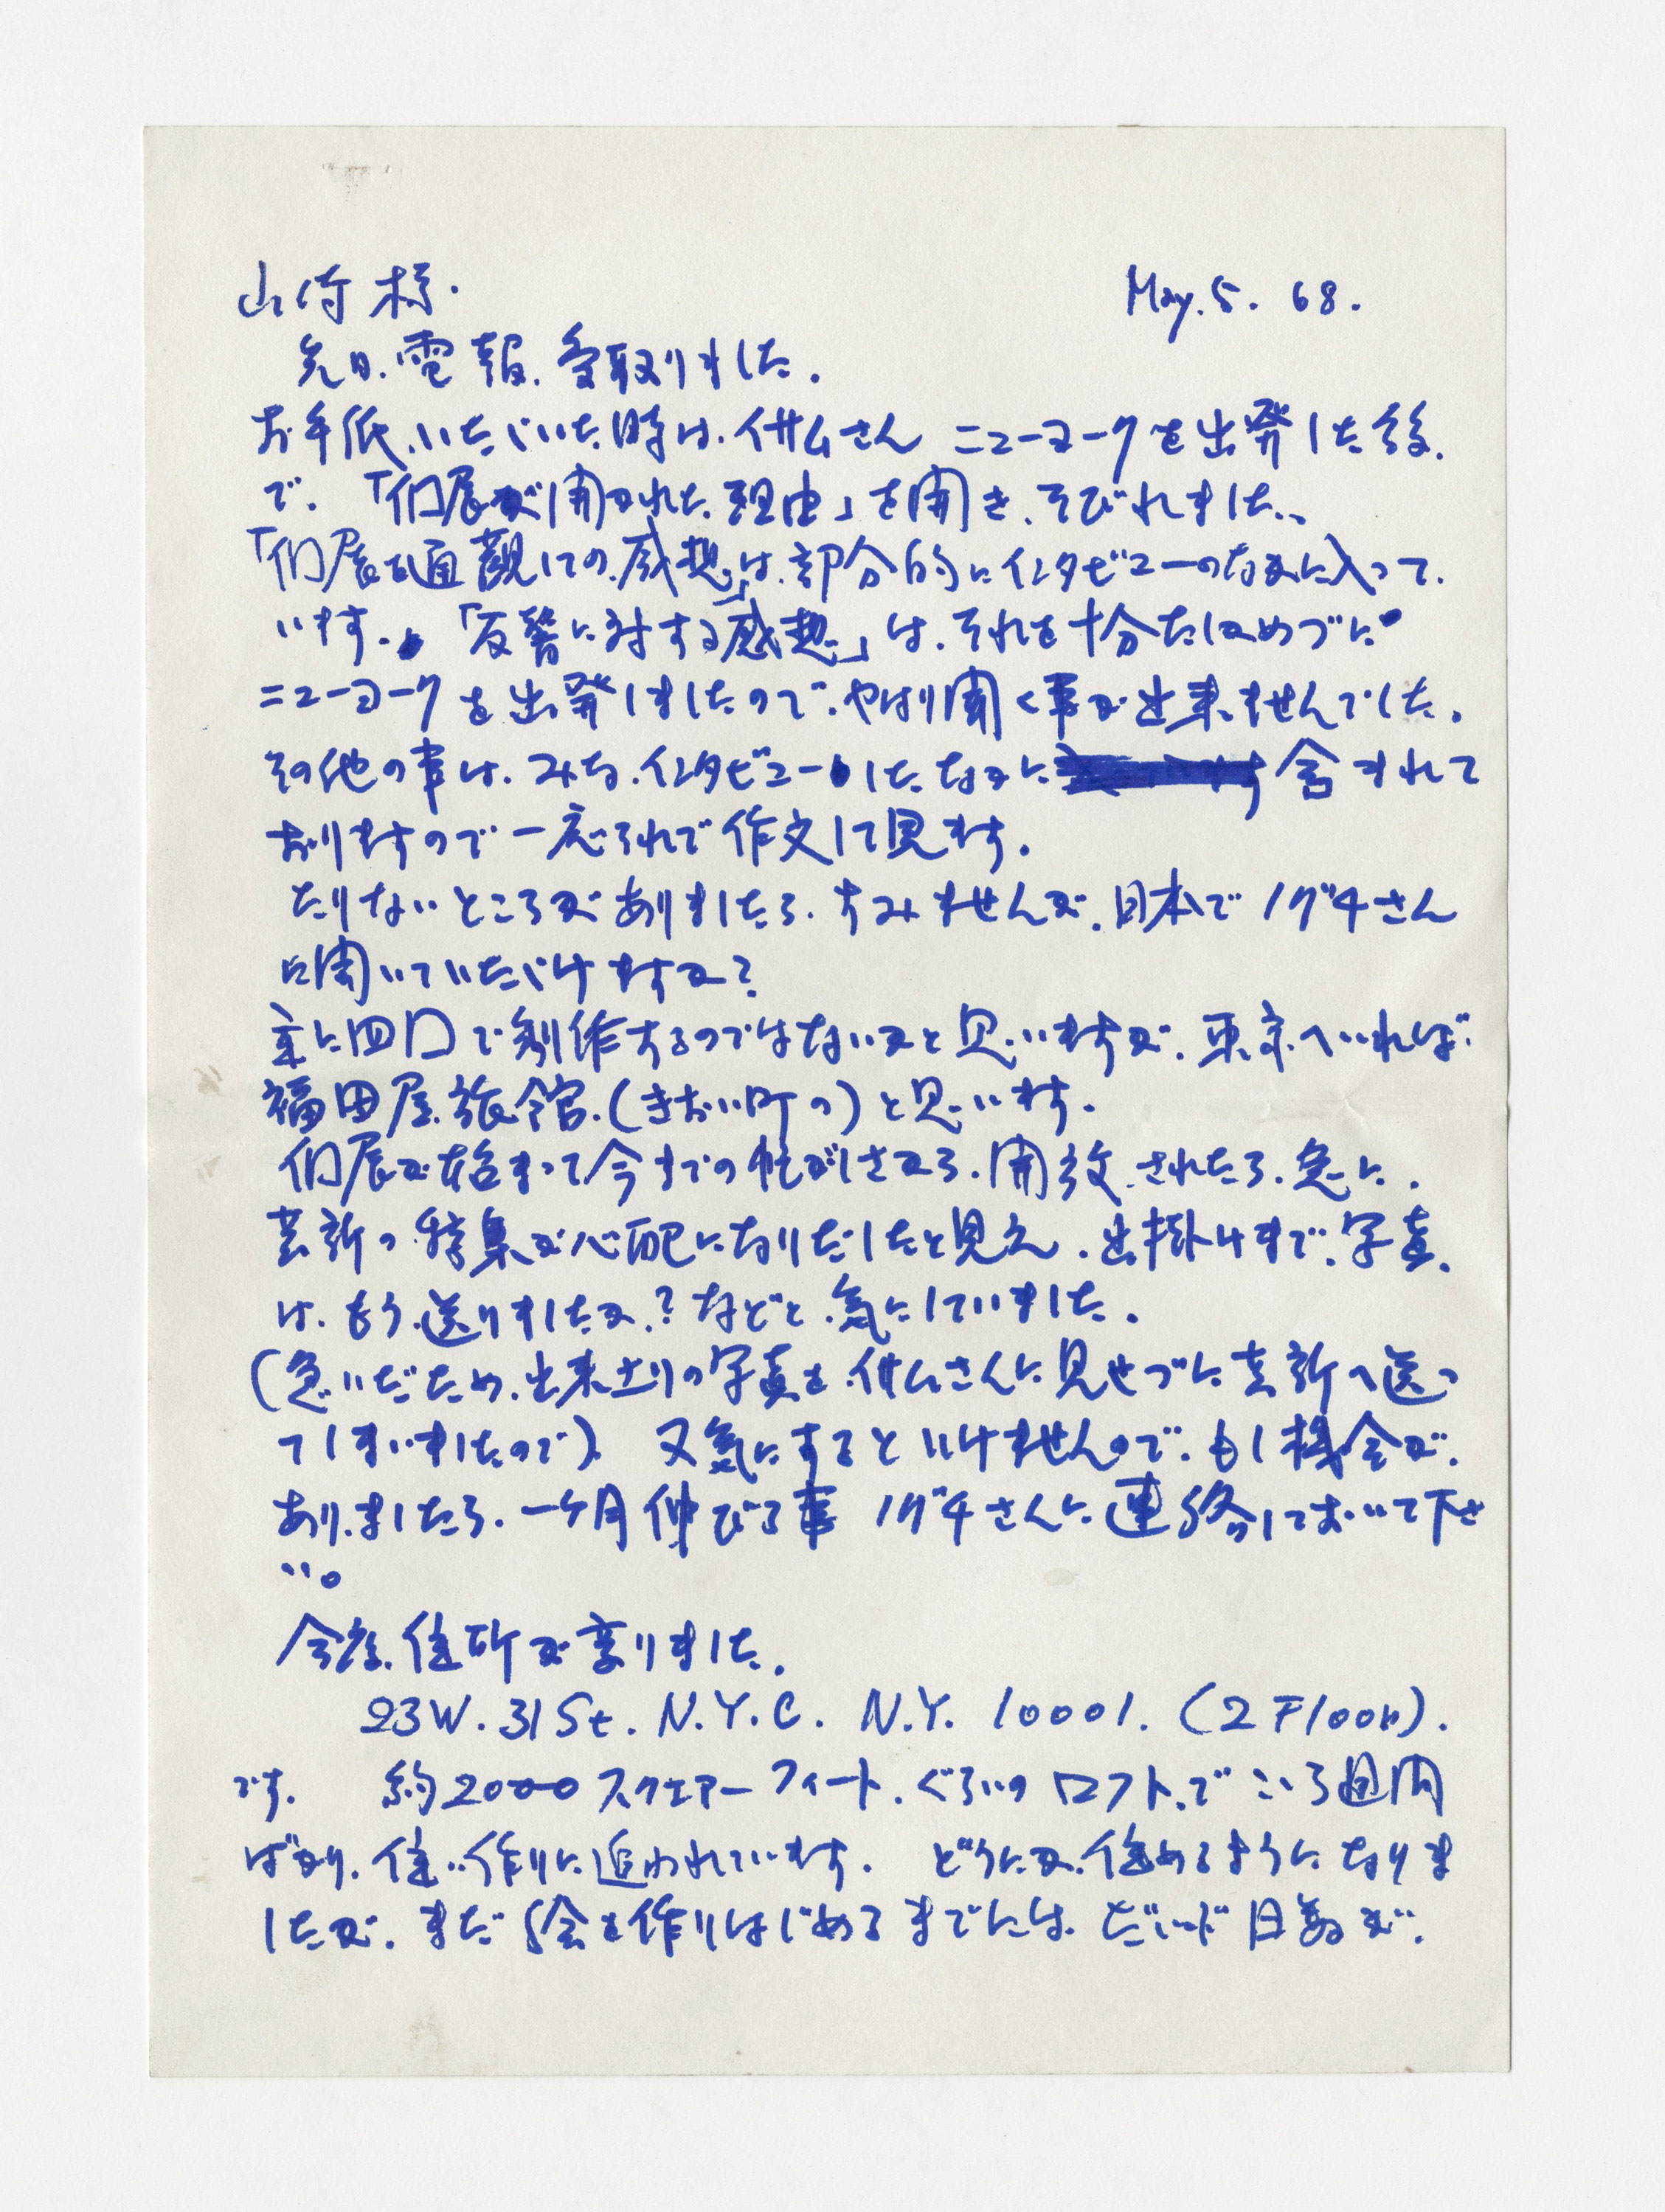 山崎様.
May. 5. 68.
先日.電報.受取りました.
お手紙.いただいた時は.イサムさん ニューヨークを出発した後.
で. 「個展が開かれた理由」を聞き.そびれました.
「個展を通観しての.感想」は.部分的にインタビューのなかに入って.
います. 「反響に対する感想」は.それを十分たしかめづに
ニューヨークを出発しましたので.やはり聞く事が出来ませんでした.
その他の事は.みな.インタビューしたなかに 含まれて
おりますので一応それで作文して見ます.
たりないところがありましたら.すみませんが.日本でノグチさん
に聞いていただけますか?
主に四国で制作するのではないかと思いますが.東京へいれば.
福田屋.旅館.(きおい町の)と思います.
個展が始まって今までの忙がしさから.開放.されたら.急に.
芸新の特集が心配になりだしたと見え.出掛けまで.写真.
は.もう.送りましたか.?などと.気にしていました.
(急いだため.出来上りの写真を.イサムさんに見せづに芸新へ送っ
てしまいましたので) 又気にするといけませんので.もし機会が.
ありましたら.一ケ月伸びる事 ノグチさんに連絡しておいて下さ
い。
今度.住所が変りました.
23W. 31 St. N.Y.C. N.Y. 10001. (2 Floor).
です. 約2000スクエアーフィート.ぐらいのロフト.で ここ3週間
ばかり.住い作りに追われています. どうにか.住めるようになりま
したが.まだ絵を作りはじめるまでには.だいぶ日数が.